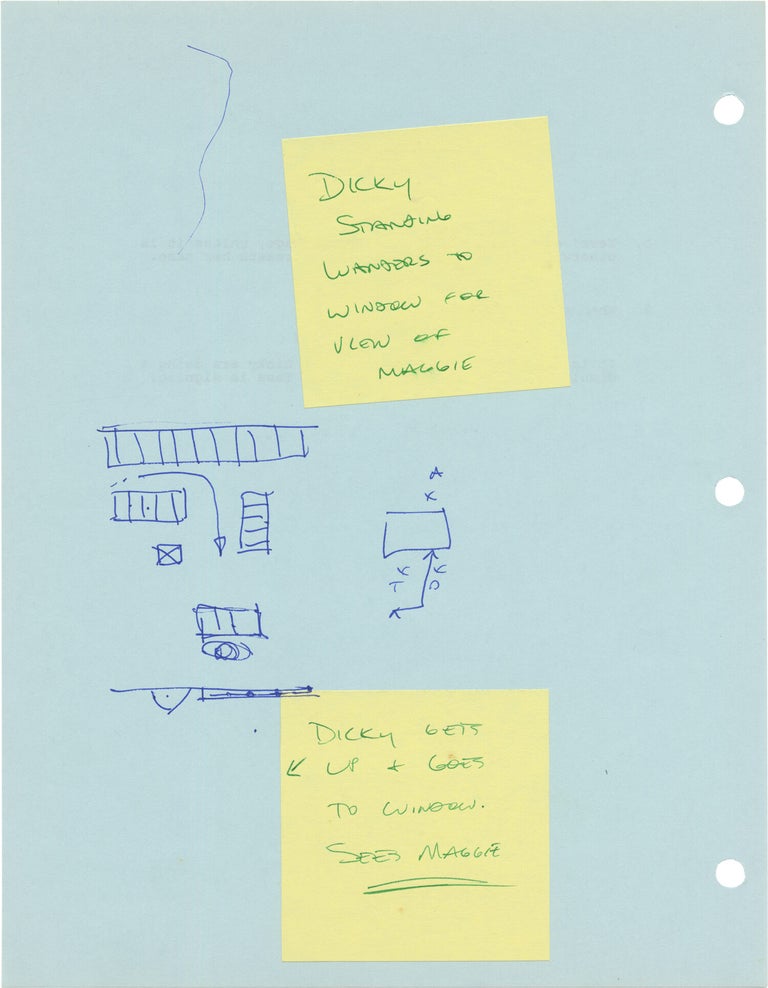 DICKY
STANDING
WANDERS TO
WINDOW FOR
VIEW OF
MAGGIE
A
X
X X
T D
DICKY GETS
UP + GOES
TO WINDOW.
SEES MAGGIE